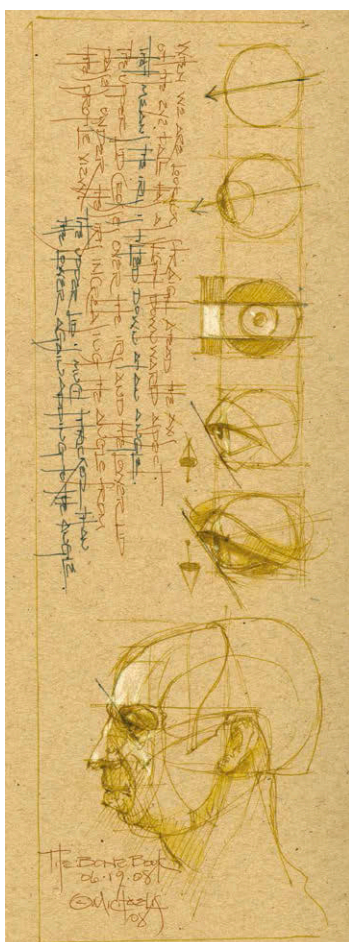 WHEN WE ARE LOOKING STRAIGHT AHEAD THE AXIS
OF THE EYE TAKES A SLIGHT DOWNWARD ASPECT.
THIS MEANS THE IRIS IS TILTED DOWN AT AN ANGLE.
THE UPPER LID OVER THE IRIS AND THE LOWER LID
UNDER THE IRIS INCREASING THE ANGLE FROM
THE PROFILE VIEW.
THE UPPER LID IS MUCH THICKER THAN
THE LOWER AGAIN ADDING TO THE ANGLE.
THE BONE BOOK
06.19.08
08